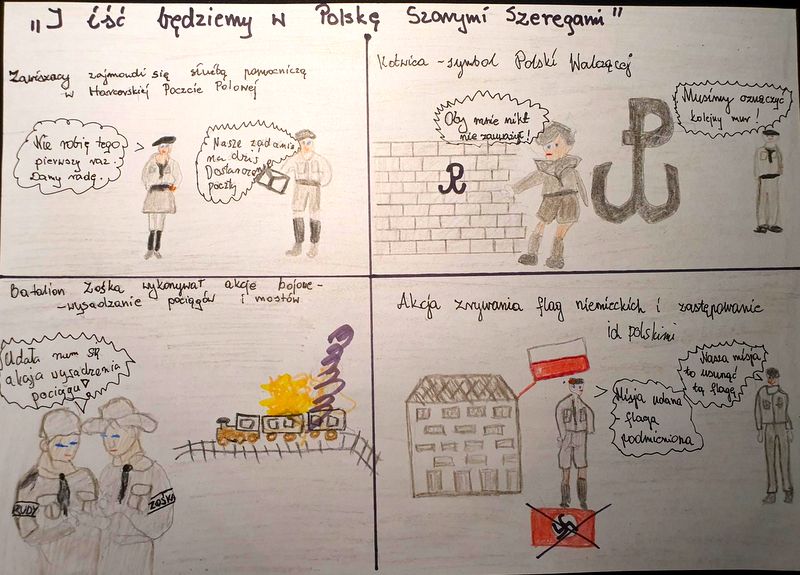 „I iść będziemy w Polskę Szarymi Szeregami"
Zawiszacy zajmowali się służbą pomocniczą
w Harcerskiej Poczcie Polowej
Nie robię tego
pierwszy raz.
Damy radę.
Nasze zadania
na dziś
Dostarczenie
poczty
Kotwica - symbol Polski Walczącej
Oby mnie nikt
nie zauważył!
Musimy oznaczyć
kolejny mur!
Batalion Zośka wykonywał akcje bojowe -
- wysadzanie pociągów i mostów
Udała nam się
akcja wysadzenia
pociągu
RUDY
ZOŚKA
Akcja zrywania flag niemieckich i zastępowanie
id polskimi
Nasza misja
to usunąć
tą flagę
Misja udana
- flaga
podmieniona